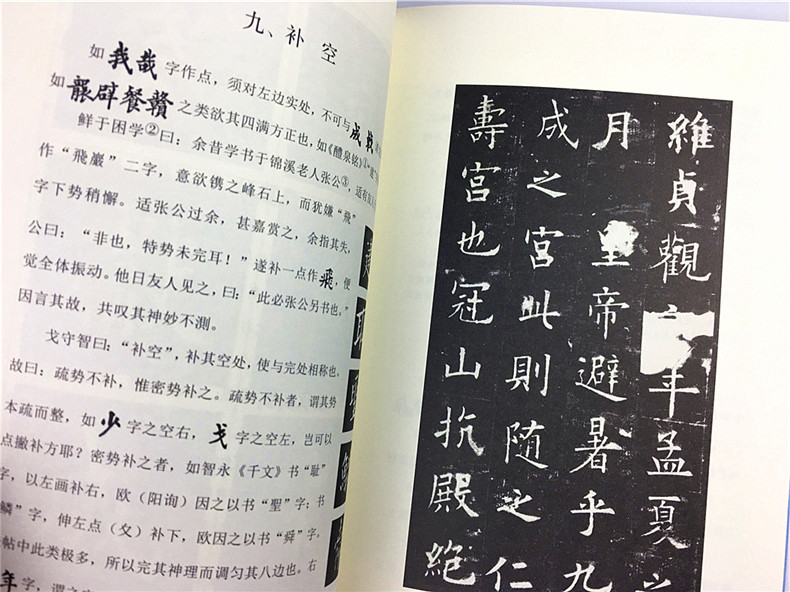 九、补空
如我哉字作点，须对左边实处，不可与成
如龘辟餐赣之类欲其四满方正也，如《醴泉铭》①
鲜于困学②曰：余昔学书于锦溪老人张公③，适有
作“飛巖”二字，意欲镌之峰石上，而犹嫌“飛”
字下势稍懈。适张公过余，甚嘉赏之，余指其失，
公曰：“非也，特势未完耳！”遂补一点作飛，便
觉全体振动。他日友人见之，曰：“此必张公另书也。”
因言其故，共叹其神妙不测。
戈守智曰：“补空”，补其空处，使与完处相称也。
故曰：疏势不补，惟密势补之。疏势不补者，谓其势
本疏而整，如少字之空右，戈字之空左，岂可以
点撇补方耶？密势补之者，如智永《千文》书“耻”
字，以左画补右，欧（阳询）因之以书“聖”字；书
鳞”字，伸左点（攵）补下，欧因之以书“舜”字，
帖中此类极多，所以完其神理而调匀其八边也。右
年字，谓之
維貞觀年孟夏之
月皇帝避暑乎九
成之宮此則随之仁
壽宮也冠山抗殿絕